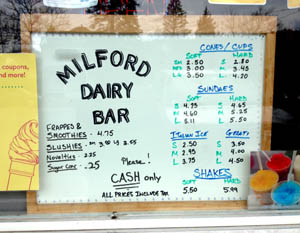 coupons,
and more!
MILFORD
DAIRY
BAR
FRAPPES &
SMOOTHIES - 4.75
SLUSHIES - sm 3.00 lg 3.55
Novelties - 2.25
Sugar Cone - .25
Please!
CASH only
ALL PRICES INCLUDE TAX
CONES/CUPS
SOFT HARD
SM 2.50 S 2.80
MED 3.00 M 3.45
LG 3.50 L 4.20
SUNDAES
SOFT HARD
S 4.05 S 4.55
M 4.60 M 5.25
L 5.11 L 5.50
ITALIAN ICE GELATI
S 2.50 S 3.50
M 2.95 M 4.00
L 3.75 L 4.50
SHAKES
SOFT HARD
5.50 5.99